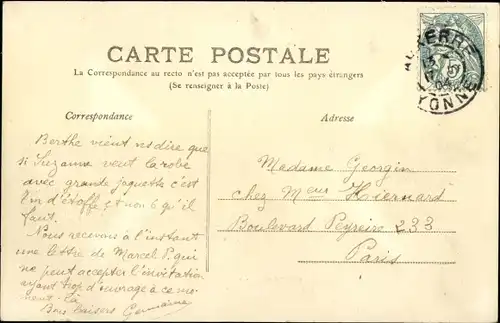 CARTE POSTALE
La Correspondance au recto n'est pas acceptée par tous les pays étrangers
(Se renseigner à la Poste)
Correspondance
Adresse
AUXERRE
YONNE
5
Berthe vient me dire que
si Suzanne veut la robe
avec grande jaquette c'est
d'étoffe et non 6 qu'il
faut.
Nous recevons à l'instant
une lettre de Marcel P. qui
ne peut accepter l'invitation
ayant trop d'ouvrage à ce mo-
ment-là
Bons baisers Germaine
Madame Georgin
chez Mme Hiernard
Boulevard Peyreire 233
Paris